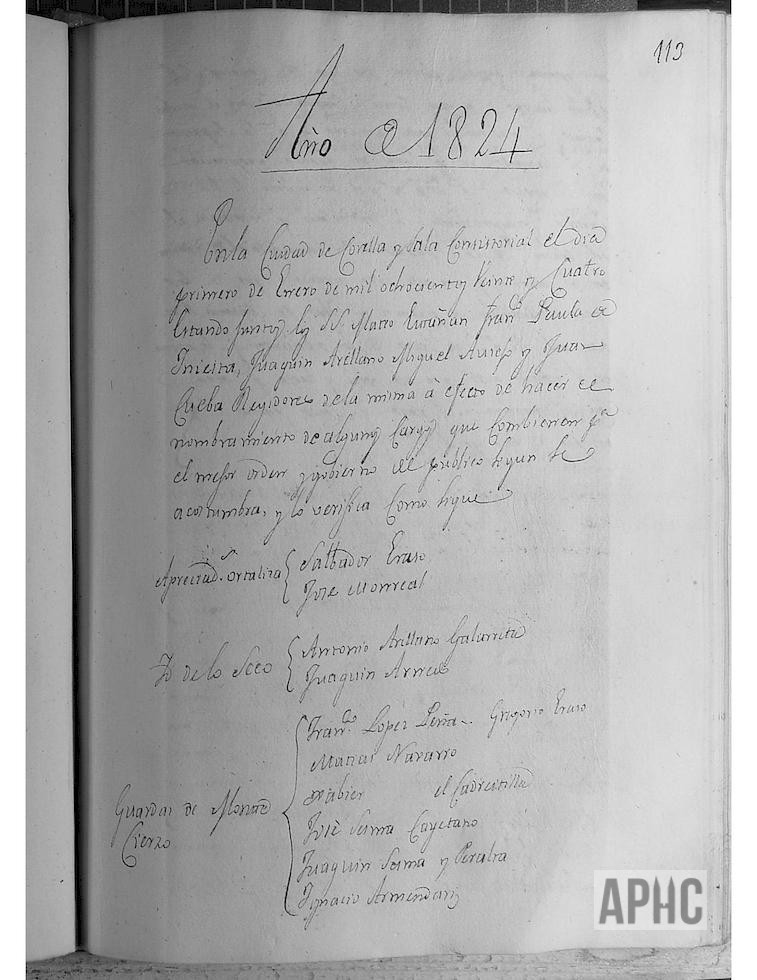 113
Año de 1824
En la Ciudad de Corella y Sala Consistorial el dia
primero de Enero de mil ochocientos Veinte y Cuatro
Estando juntos los SS. Mateo Franco Paula de
Juaquin Arellano Miguel y Juan
Cueba Regidores de la misma à efecto de hacer el
nombramiento de algunos Cargos que Combienen pª
el mejor orden y gobierno del público segun se
acostumbra, y lo verifica Como sigue
Apreciads. Ortaliza Salbador Eraso
José Monreal
Yd de lo Seco Antonio Arellano Galarreta
Juaquin
Guardas de Monte Cierzo
Franco Lopez Peña Gregorio Eraso
Matias Navarro
Xabier el Cadreitilla
José Sesma Cayetano
Juaquin Sesma y Peralta
Ygnacio Armendariz
APHC